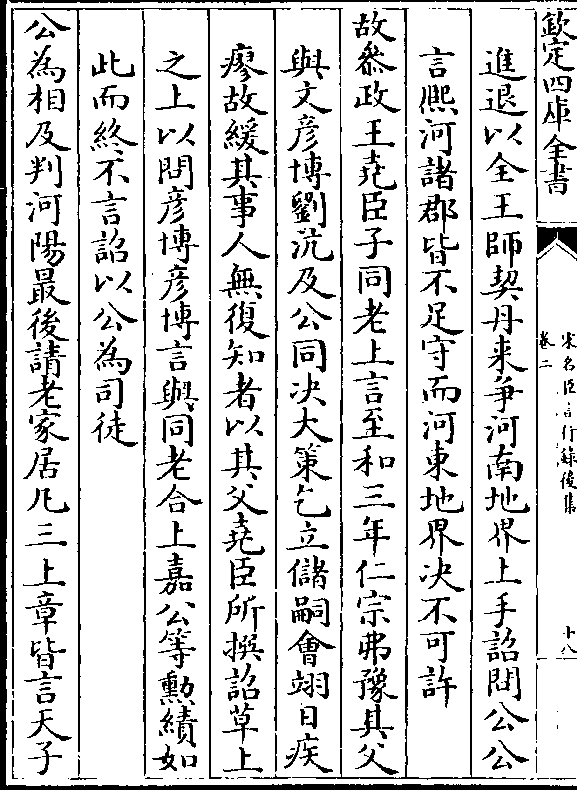 欽定四庫全書
宋名臣言行錄後集
卷二
十八
進退以全王師契丹来爭河南地界上手詔問公公
言熈河諸郡皆不足守而河東地界決不可許
故叅政王堯臣子同老上言至和三年仁宗弗豫其父
與文彦博劉沆及公同決大策乞立儲嗣會翊日疾
廖故緩其事人無復知者以其父堯臣所撰詔草上
之上以問彦博彦博言與同老合上嘉公等勲績如
此而終不言詔以公為司徒
公為相及判河陽最後請老家居凡三上章皆言天子